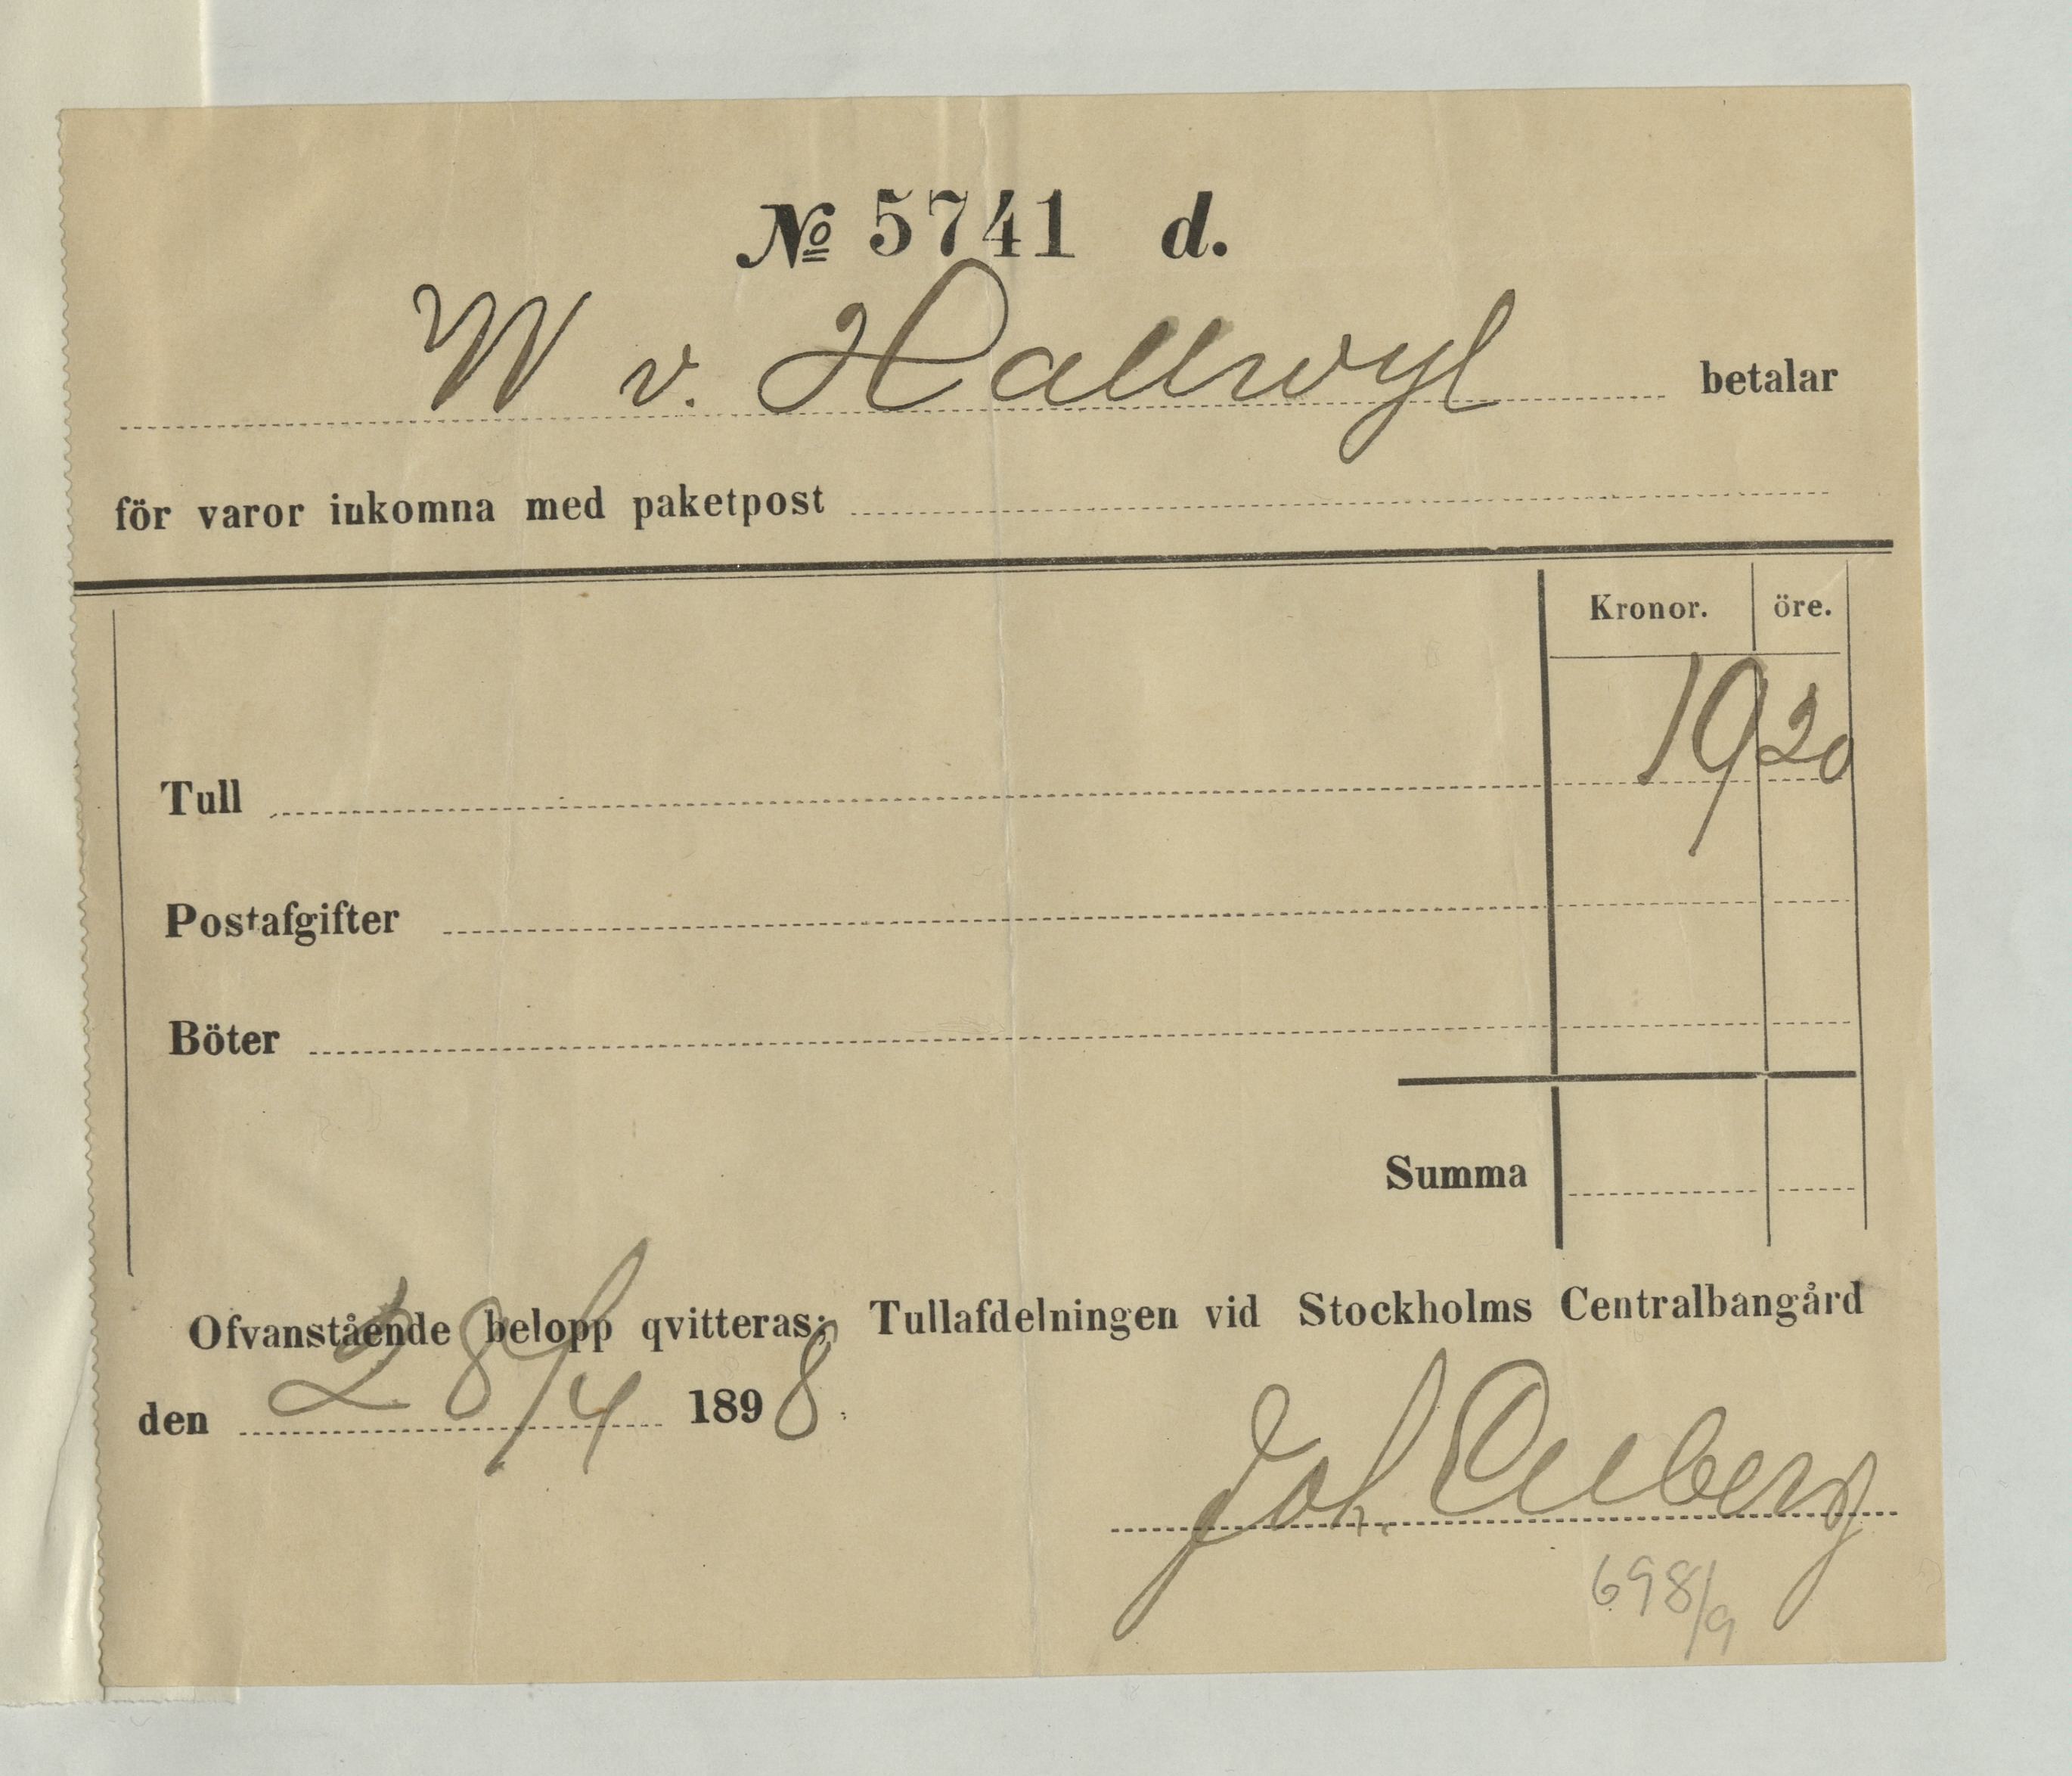 № 5741 d.
W v. Hallwyl betalar
för varor inkomna med paketpost
Kronor. öre.
Tull 19 20
Postafgifter
Böter
Summa
Ofvanstående belopp qvitteras; Tullafdelningen vid Stockholms Centralbangård
den 28/4 1898.
Joh.
698/9